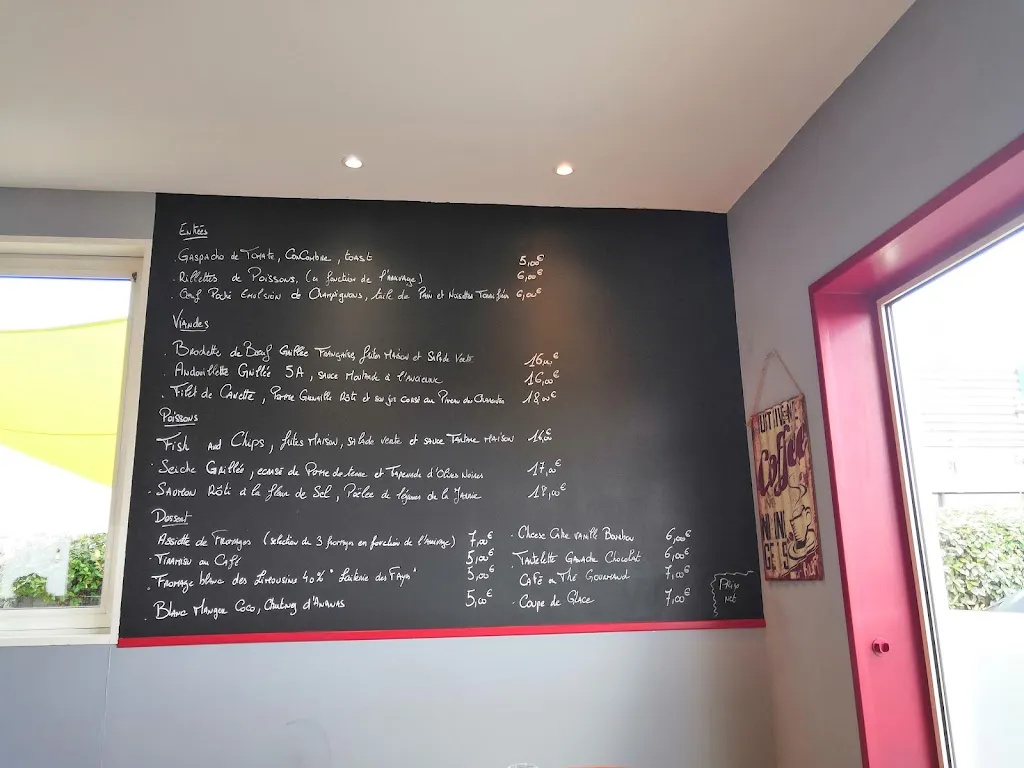 Entrées
. Gaspacho de Tomate, Concombre, toast 5,00€
. Rillettes de Poissons, (en fonction de l'arrivage) 6,00€
. Oeuf Poché Emulsion de Champignons, tuile de Pain et Noisettes Torréfiées 6,00€
Viandes
. Brochette de Boeuf Grillée Française, frites Maison et Salade Verte 16,00€
. Andouillette Grillée 5A, sauce Moutarde à l'Ancienne 16,00€
. Filet de Canette, Pomme Grenaille Rôti et son jus corsé au Pineau des Charentes 18,00€
Poissons
. Fish and Chips, frites Maison, Salade verte et sauce Tartare Maison 16,00€
. Seiche Grillée, ecrasé de Pomme de terre et Tapenade d'Olives Noires 17,00€
. Saumon Rôti à la fleur de Sel, Poêlée de légumes de la 18,00€
Dessert
. Assiette de Fromages (selection de 3 fromages en fonction de l'arrivage) 7,00€
. Tiramisu au Café 5,00€
. Fromage blanc des Limousins 40% "Laiterie des Fayes" 5,00€
. Blanc Manger Coco, Chutney d'Ananas 5,00€
. Cheese Cake vanille Bourbon 6,00€
. Tartelette Ganache Chocolat 6,00€
. Café ou Thé Gourmand 7,00€
. Coupe de Glace 7,00€
Prix
Net
Coffee